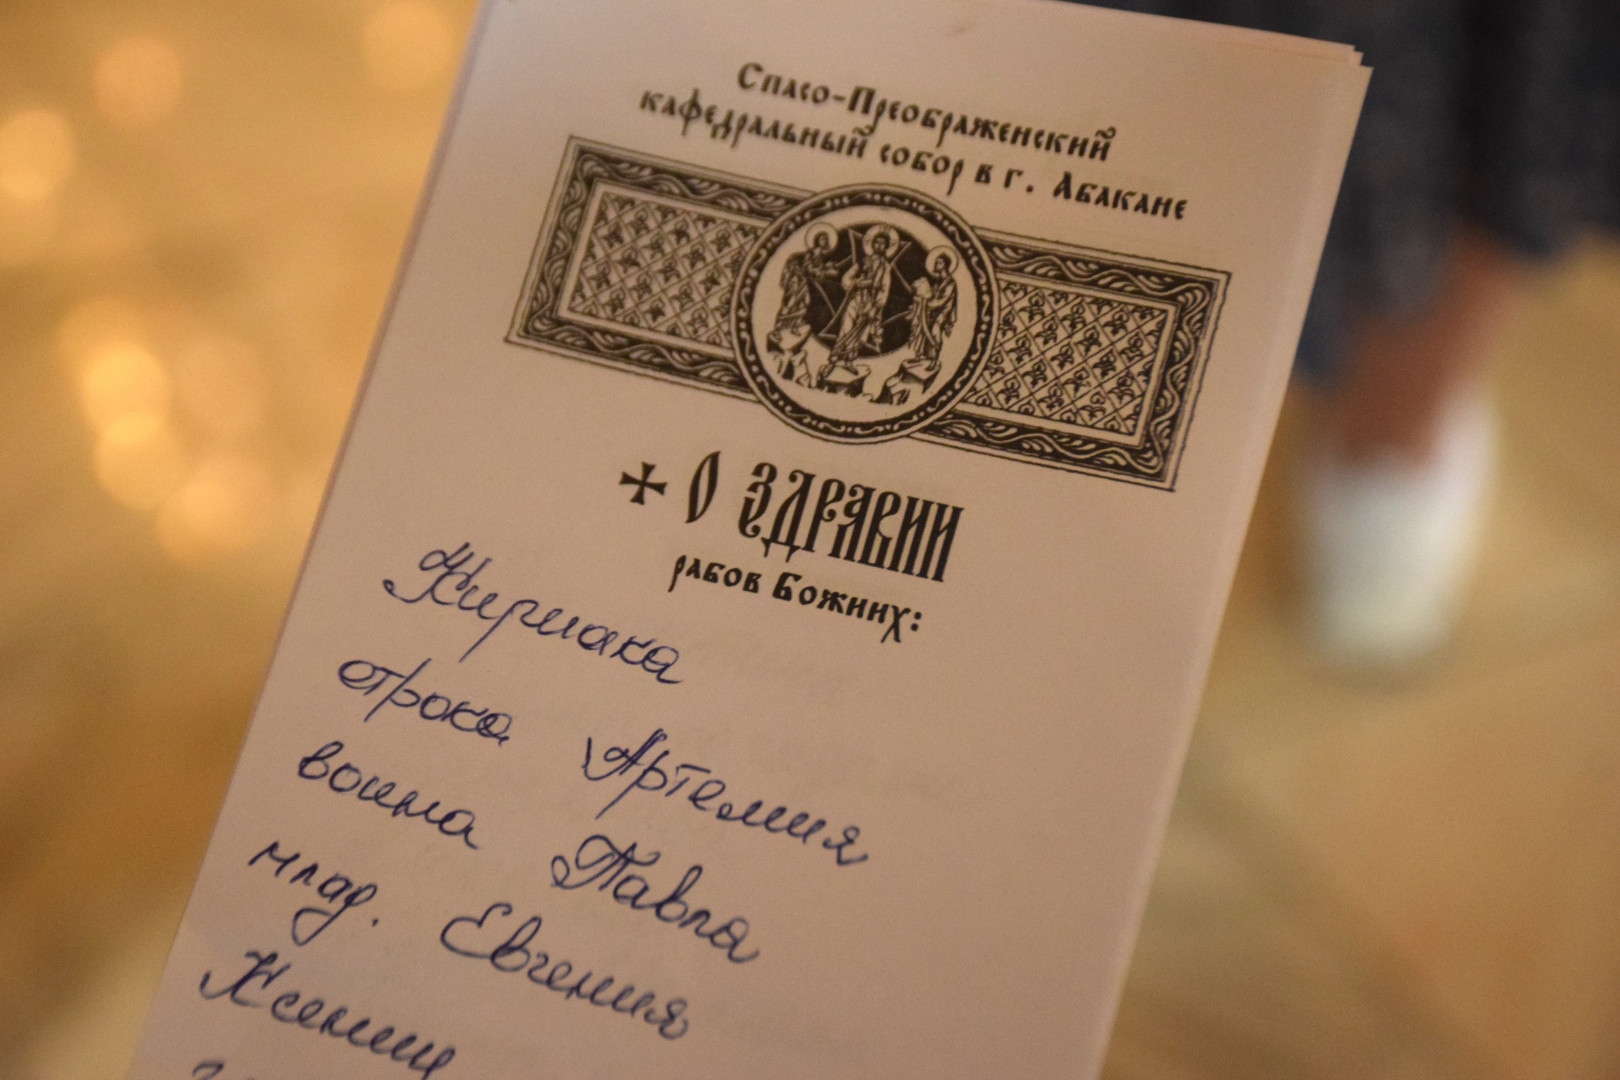 Спасо-Преображенский
кафедральный собор в г. Абакане
О ЗДРАВИИ
рабов Божиих:
Кириака
отрока Артемия
воина Павла
млад. Евгения
Ксении